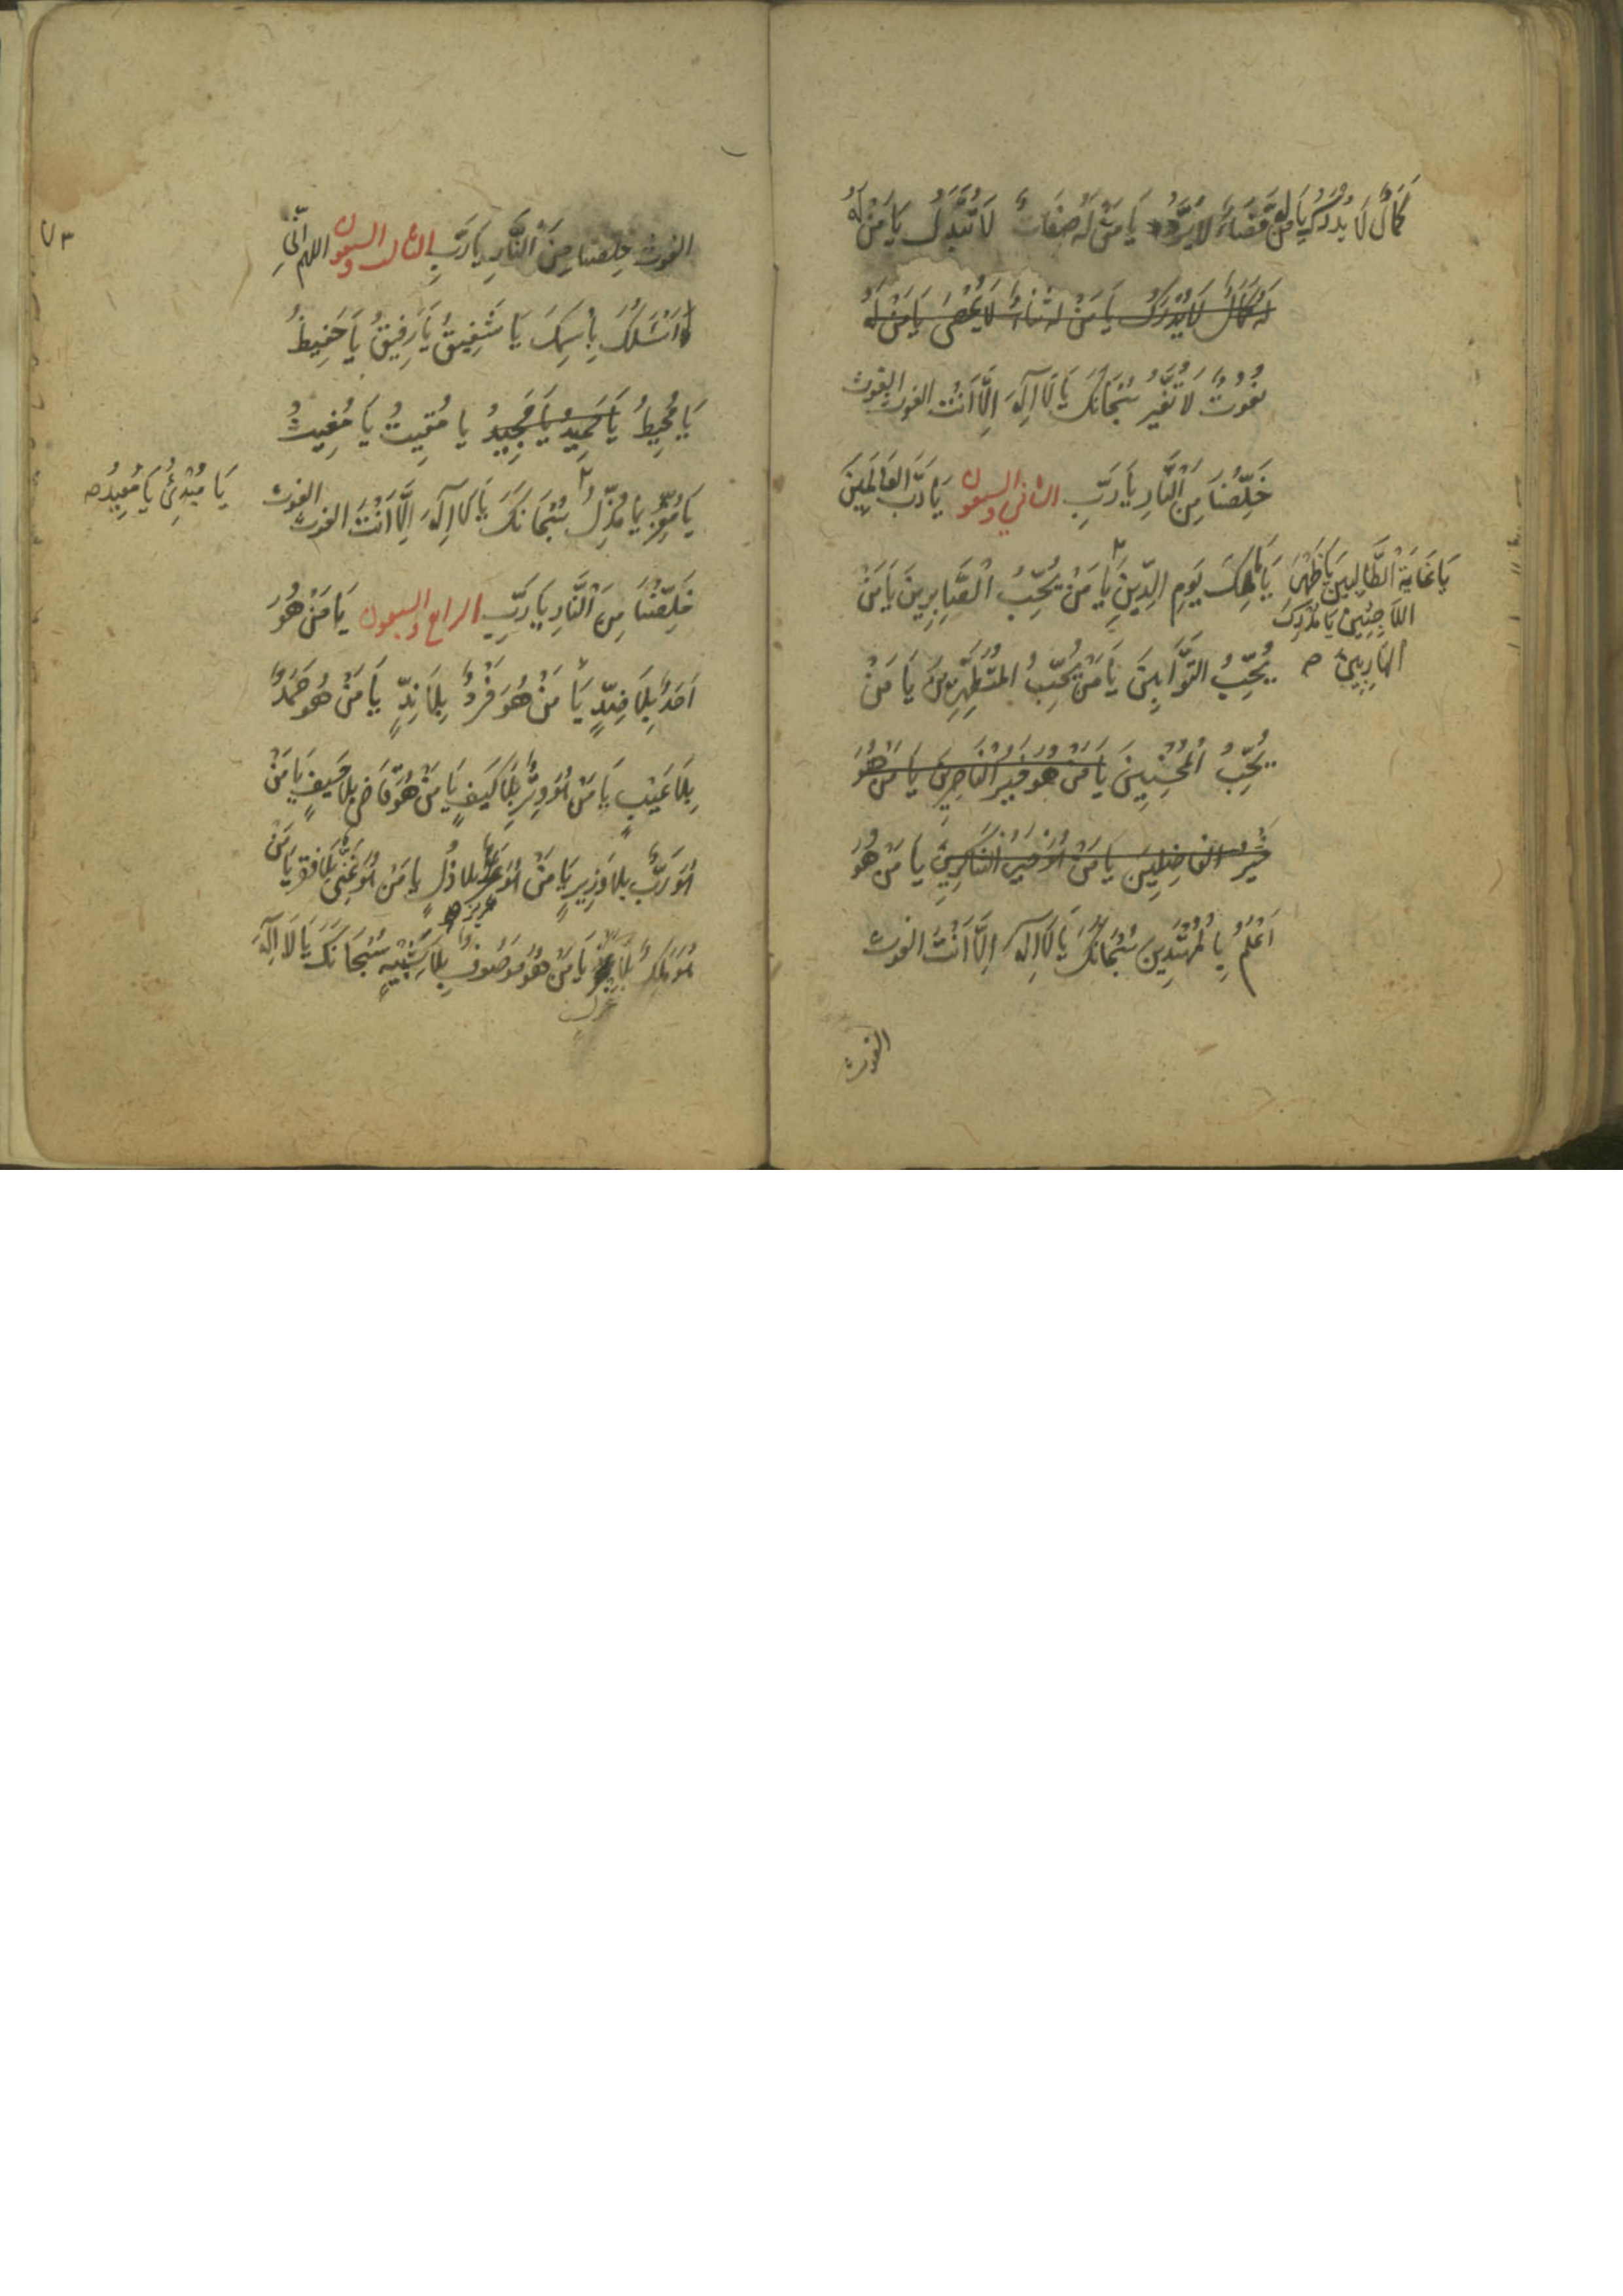 كَمَالٌ لَا يُدْرَكُ يَا مَنْ لَهُ قَضَاءٌ لَا يُرَدُّ يَا مَنْ لَهُ صِفَاتٌ لَا تُبَدَّلُ يَا مَنْ لَهُ
لَهُ كَمَالٌ لَا يُدْرَكُ يَا مَنْ لَهُ ثَنَاءٌ لَا يُحْصَى يَا مَنْ لَهُ
نُعُوتٌ لَا تُغَيَّرُ سُبْحَانَكَ يَا لَا اِلٰهَ اِلَّا اَنْتَ الغوث الغوث
خَلِّصْنَا مِنَ النَّارِ يَا رَبِّ الثاني والسبعون يَا رَبَّ العَالَمِينَ
يَا مَالِكَ يَوْمِ الدِّينِ يَا مَنْ يُحِبُّ الصَّابِرِينَ يَا مَنْ
يَا غَايَةَ الطَّالِبِينَ يَا ظَهْرَ
اللَّاجِئِينَ يَا مُدْرِكَ
الهَارِبِينَ صه
يُحِبُّ التَّوَّابِينَ يَا مَنْ يُحِبُّ المُتَطَهِّرِينَ يَا مَنْ
يُحِبُّ المُحْسِنِينَ يَا مَنْ هُوَ خَيْرُ النَّاصِرِينَ يَا مَنْ هُوَ
خَيْرُ الفَاصِلِينَ يَا مَنْ هُوَ خَيْرُ الشَّاكِرِينَ يَا مَنْ هُوَ
اَعْلَمُ بِالمُهْتَدِينَ سُبْحَانَكَ يَا لَا اِلٰهَ اِلَّا اَنْتَ الغوث
الغوث
٧٣
الغوث خلصنا مِنَ النَّارِ يَا رَبِّ الثالث والسبعون اللهم اِنِّي
اَسْئَلُكَ بِاسْمِكَ يَا شَفِيقُ يَا رَفِيقُ يَا حَفِيظُ
يَا مُحِيطُ يَا حَمِيدُ يَا مَجِيدُ يا مُقِيتُ يَا مُغِيثُ
يَا مُعِزُّ يَا مُذِلُّ سُبْحَانَكَ يَا لَا اِلٰهَ اِلَّا اَنْتَ الغوث الغوث
يَا مُبْدِئُ يَا مُعِيدُ صه
خَلِّصْنَا مِنَ النَّارِ يَا رَبِّ الرابع والسبعون يَا مَنْ هُوَ
اَحَدٌ بِلَا ضِدٍّ يَا مَنْ هُوَ فَرْدٌ بِلَا نِدٍّ يَا مَنْ هُوَ صَمَدٌ
بِلَا عَيْبٍ يَا مَنْ هُوَ وِتْرٌ بِلَا كَيْفٍ يَا مَنْ هُوَ قَاضٍ بِلَا حَيْفٍ يَا مَنْ
هُوَ رَبٌّ بِلَا وَزِيرٍ يَا مَنْ هُوَ عزيز بلا ذُلٍّ يا مَنْ هُوَ غَنِيٌّ بِلَا فقر يَا مَنْ
عزيز صه
هُوَ مَلِكٌ بِلَا عزل يَا مَنْ هُوَ مَوْصُوفٌ بِلَا شَبِيهٍ سُبْحَانَكَ يَا لَا اِلٰهَ
عزل